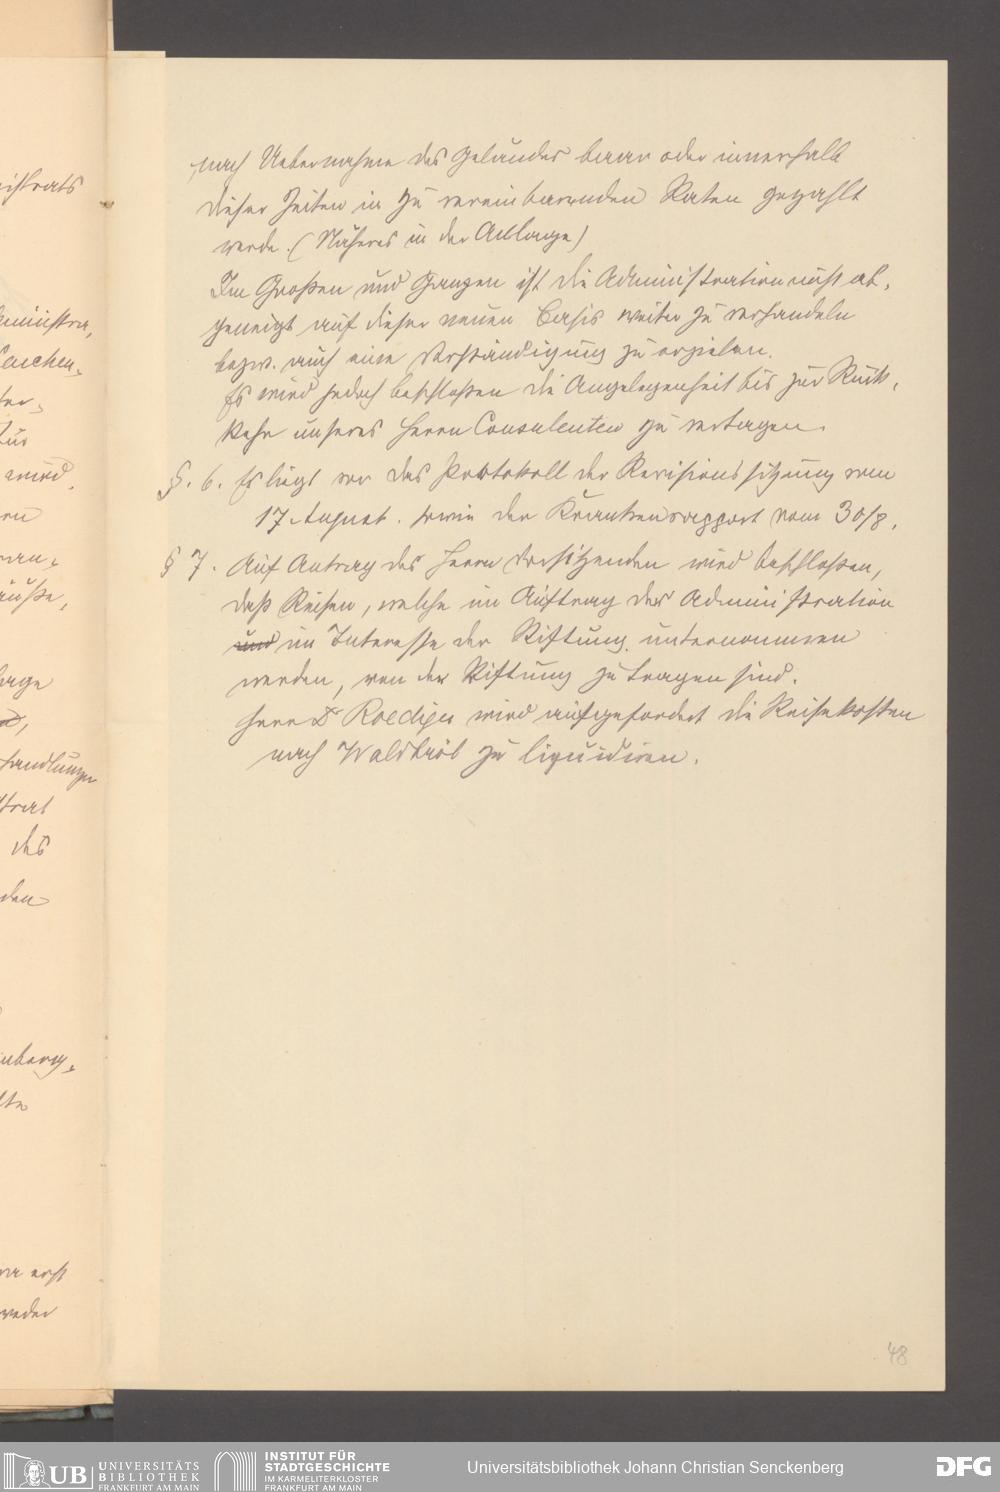 nach Uebernahme des Geländes baar oder innerhalb
dieser Zeiten in zu vereinbarenden Raten gezahlt
werde. (Näheres in der Anlage)
Im Großen und Ganzen ist die Administration nicht ab-
geneigt auf dieser neuen Basis weiter zu verhandeln
bezw. auch eine Verständigung zu erzielen.
Es wird jedoch beschloßen die Angelegenheit bis zur Rück-
kehr unseres Herrn Consulenten zu vertagen.
§. 6. Es liegt vor das Protokoll der Revisionssitzung vom
17. August. sowie der Krankenrapport vom 30/8.
§ 7. Auf Antrag des Herrn Vorsitzenden wird beschloßen,
daß Reisen, welche im Auftrag der Administration
und im Interesse der Stiftung unternommen
werden, von der Stiftung zu tragen sind.
Herr Dr Roediger wird aufgefordert die Reisekosten
nach Waldbröl zu liquidiren.
48
istrats
ministra-
wird
für
rage
handlungen
strat
des
den
erst
weder
UB UNIVERSITÄTS
BIBLIOTHEK
FRANKFURT AM MAIN
INSTITUT FÜR
STADTGESCHICHTE
IM KARMELITERKLOSTER
FRANKFURT AM MAIN
Universitätsbibliothek Johann Christian Senckenberg
DFG